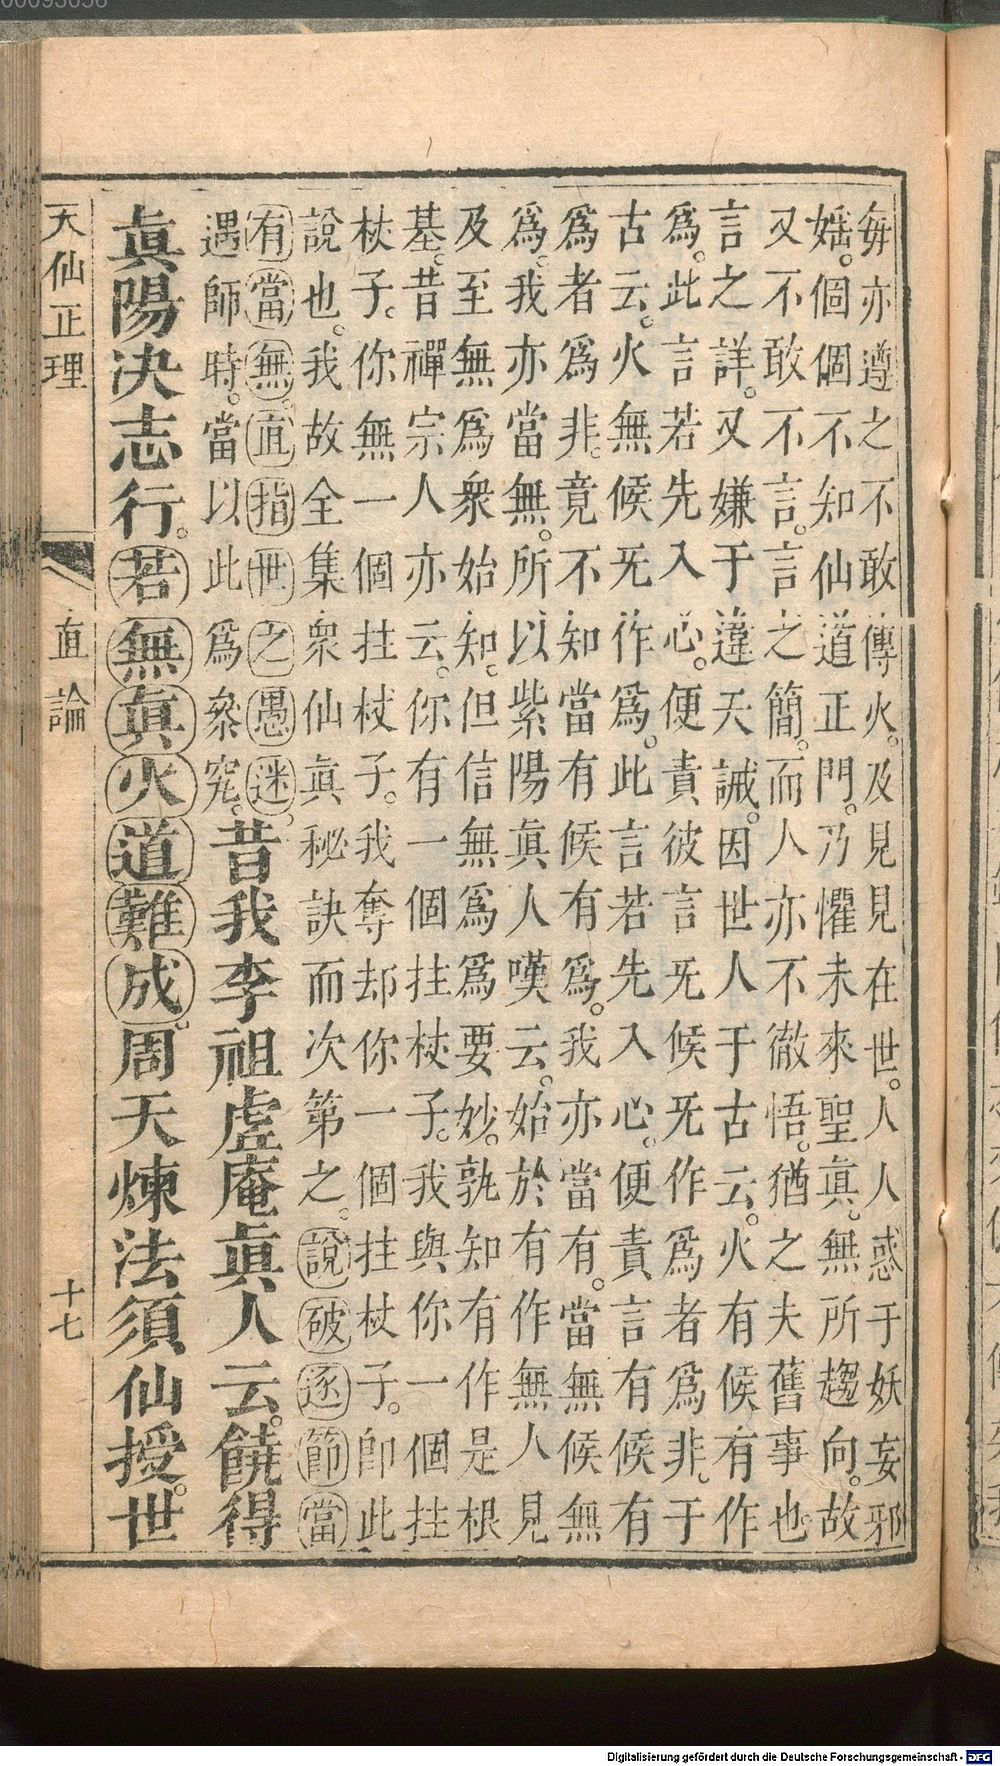 毎亦遵之不敢傳火。及見見在世。人人惑于妖妄邪
婬。個個不知仙道正門。乃懼未來聖眞。無所趨向。故
又不敢不言。言之簡。而人亦不徹悟。猶之夫舊事也
言之詳。又嫌于違天誡。因世人于古云。火有候有作
爲。此言若先入心。便責彼言旡候旡作爲者爲非。于
古云。火無候旡作爲。此言若先入心。便責言有候有
爲者爲非。竟不知當有候有爲。我亦當有。當無候無
爲。我亦當無。所以紫陽眞人嘆云。始於有作無人見
及至無爲衆始知。但信無爲爲要妙。孰知有作是根
基。昔禪宗人亦云。你有一個拄杖子。我與你一個拄
杖子。你無一個拄杖子。我奪却你一個拄杖子。卽此
說也。我故全集衆仙眞秘訣而次第之。說破逐節當
有當無。直指世之愚迷。
遇師時。當以此爲叅究。昔我李祖虛庵眞人云。饒得
眞陽決志行。若無眞火道難成。周天煉法須仙授。世
天仙正理
直論
十七
Digitalisierung gefördert durch die Deutsche Forschungsgemeinschaft - DFG